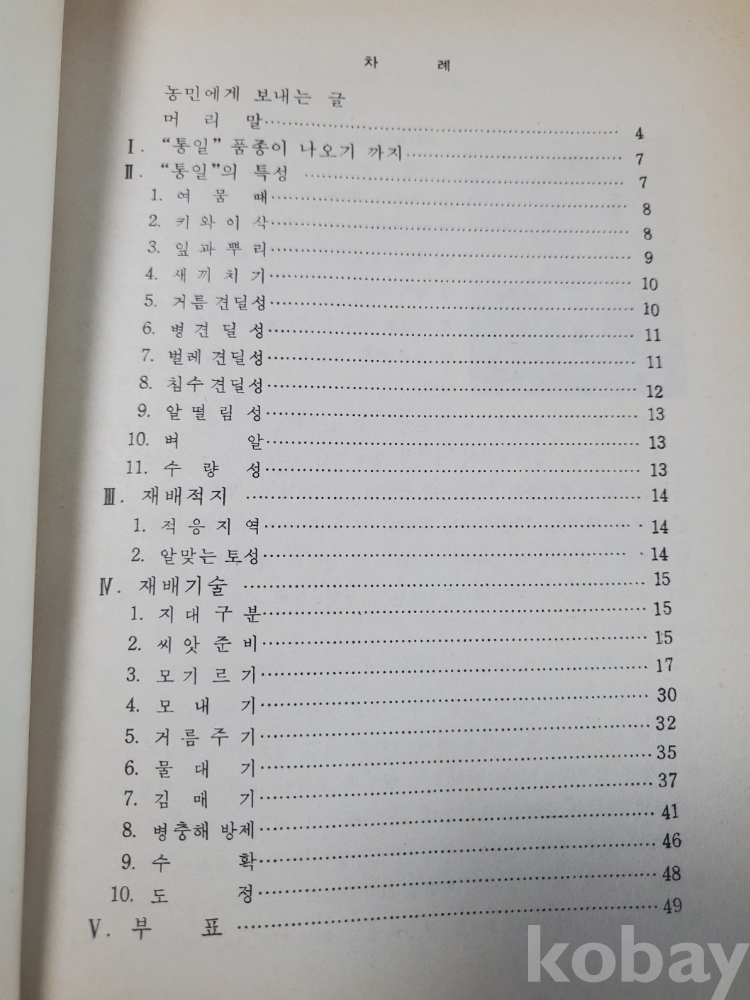 차 례
농민에게 보내는 글
머 리 말 4
Ⅰ. “통일” 품종이 나오기 까지 7
Ⅱ. “통일”의 특성 7
1. 여 뭄 때 8
2. 키 와 이 삭 8
3. 잎 과 뿌 리 9
4. 새 끼 치 기 10
5. 거름 견딜성 10
6. 병 견 딜 성 11
7. 벌레 견딜성 11
8. 침수 견딜성 12
9. 알 떨 림 성 13
10. 벼 알 13
11. 수 량 성 13
Ⅲ. 재배적지 14
1. 적 응 지 역 14
2. 알맞는 토성 14
Ⅳ. 재배기술 15
1. 지 대 구 분 15
2. 씨 앗 준 비 15
3. 모 기 르 기 17
4. 모 내 기 30
5. 거 름 주 기 32
6. 물 대 기 35
7. 김 매 기 37
8. 병충해 방제 41
9. 수 확 46
10. 도 정 48
Ⅴ. 부 표 49
kobay